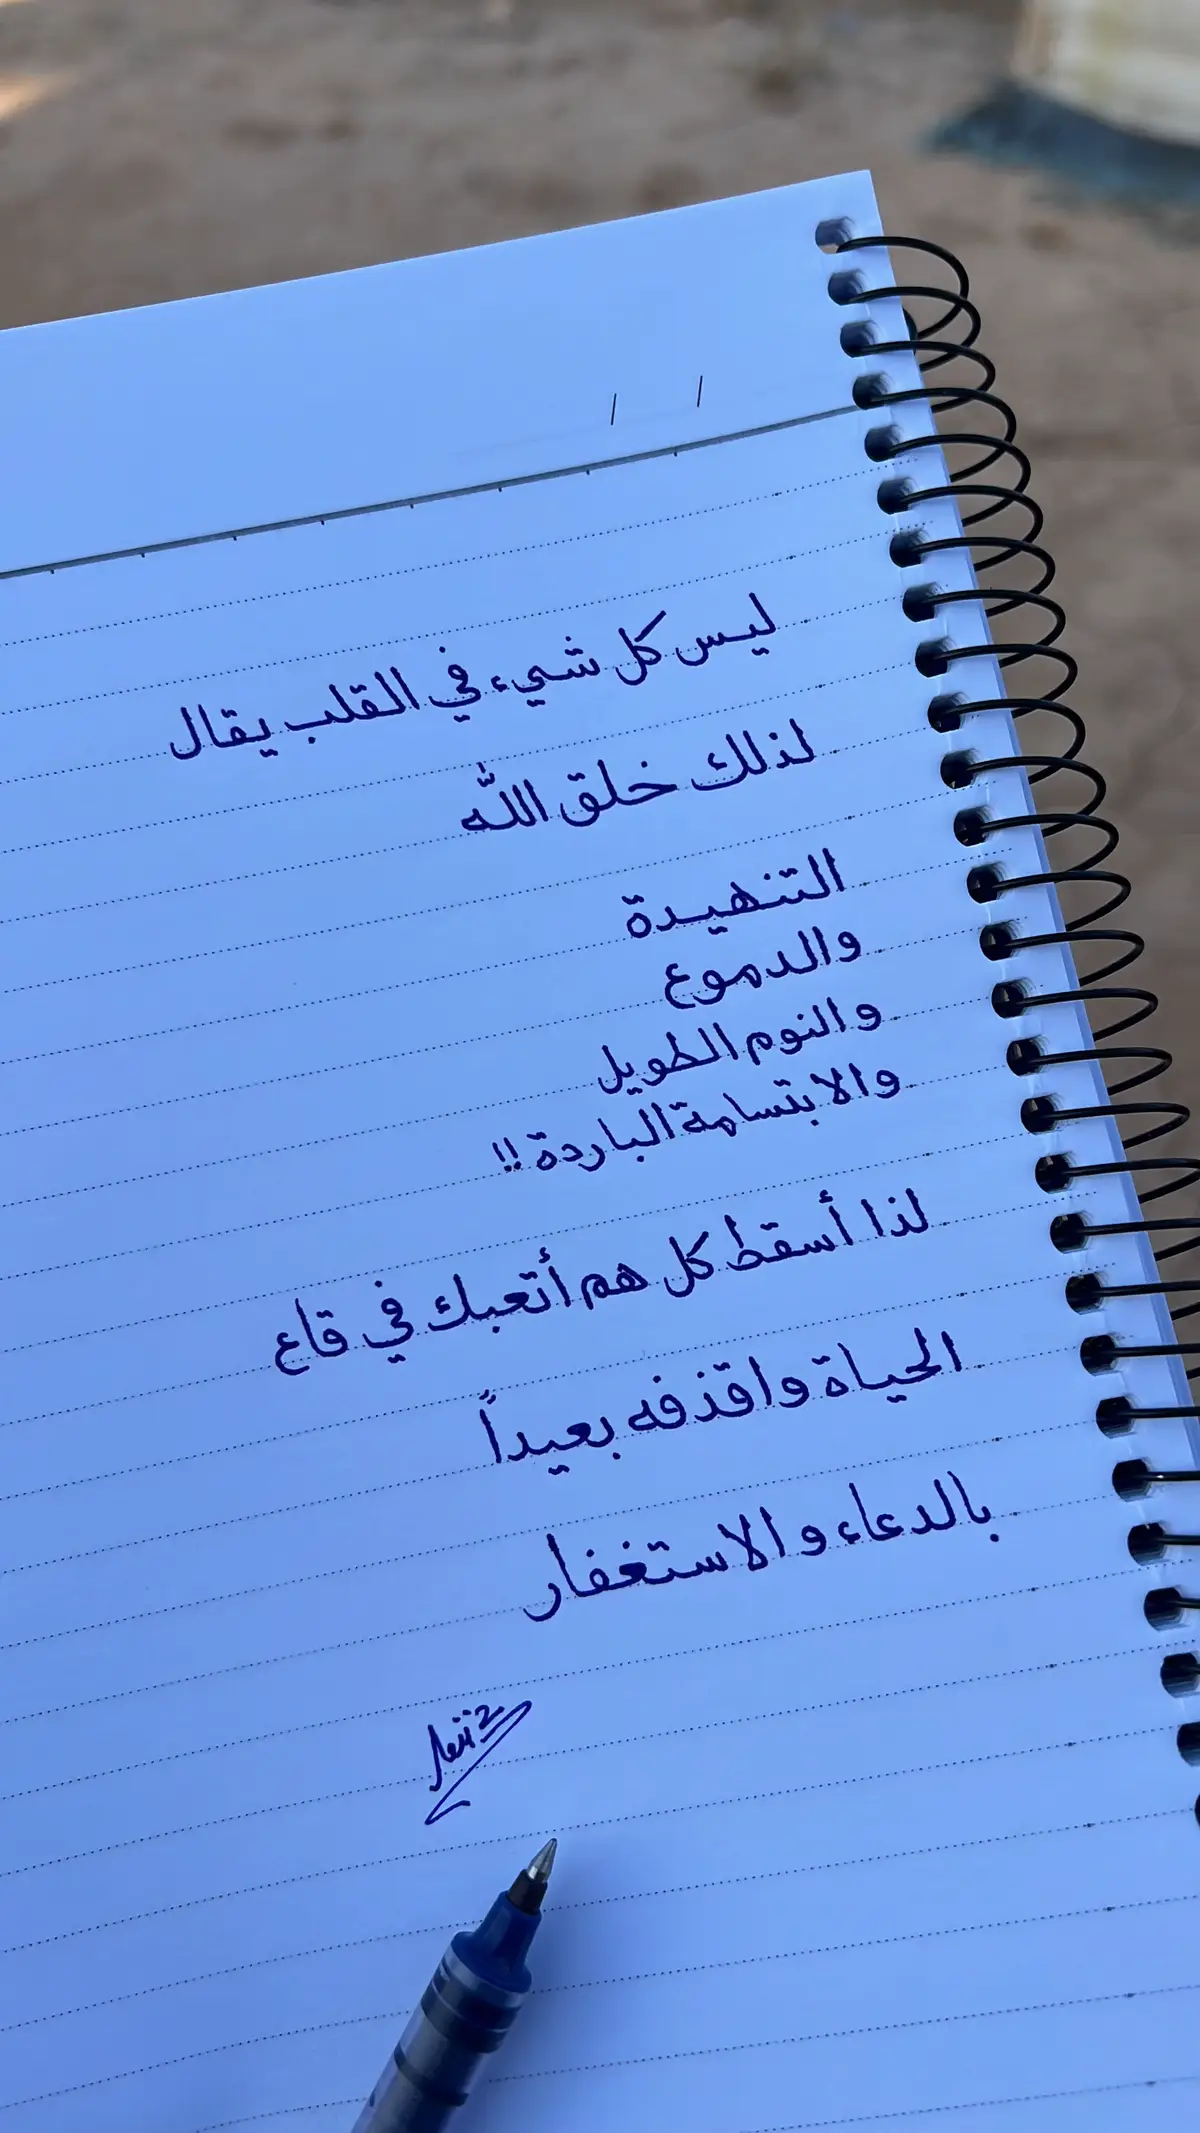 / /
ليس كل شيء في القلب يقال
لذلك خلق الله
التنهيدة
والدموع
والنوم الطويل
والابتسامة الباردة !!
لذا أسقط كل هم أتعبك في قاع
الحياة واقذفه بعيداً
بالدعاء والاستغفار